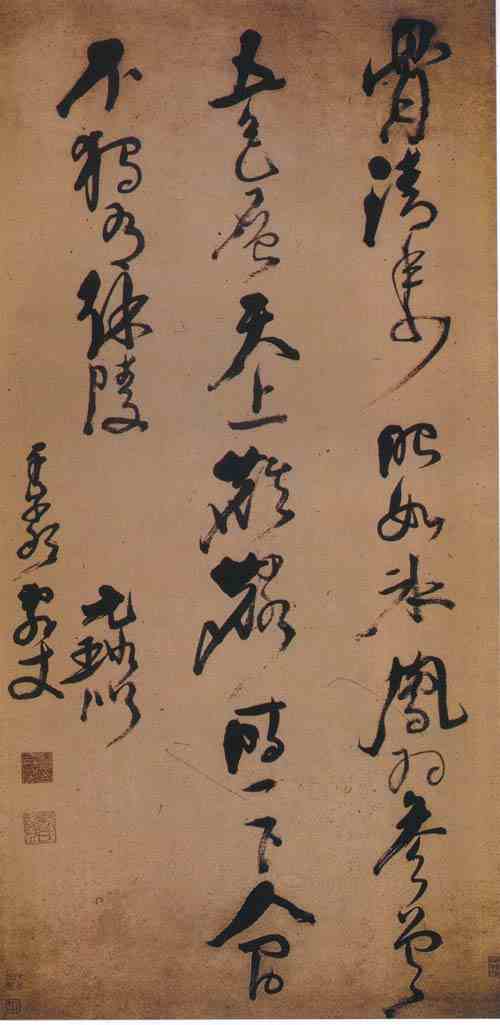 骨清年少眼如冰鳳羽參差
五色層天上麒麟時一下人間
不獨有徐陵 元璐似
家丈